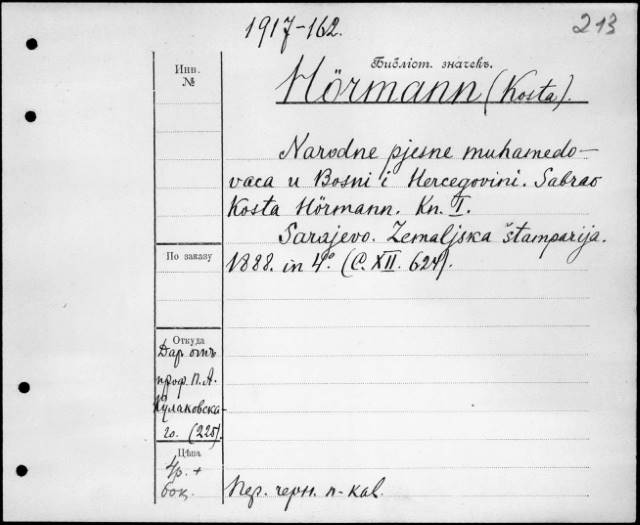 1917-162.
213
Инв.
№
Библіот. значекъ.
Hörmann (Kosta).
Narodne pjesne muhamedo-
vaca u Bosni i Hercegovini. Sabrao
Kosta Hörmann. Kn. I.
Sarajevo. Zemaljska štamparija.
1888. in 4° (C. XII. 624).
По заказу
Откуда
Дар. отъ
проф. П. А.
Кулаковска-
го. (225).
Цѣна
4р. +
Пер. черн. п-кал.